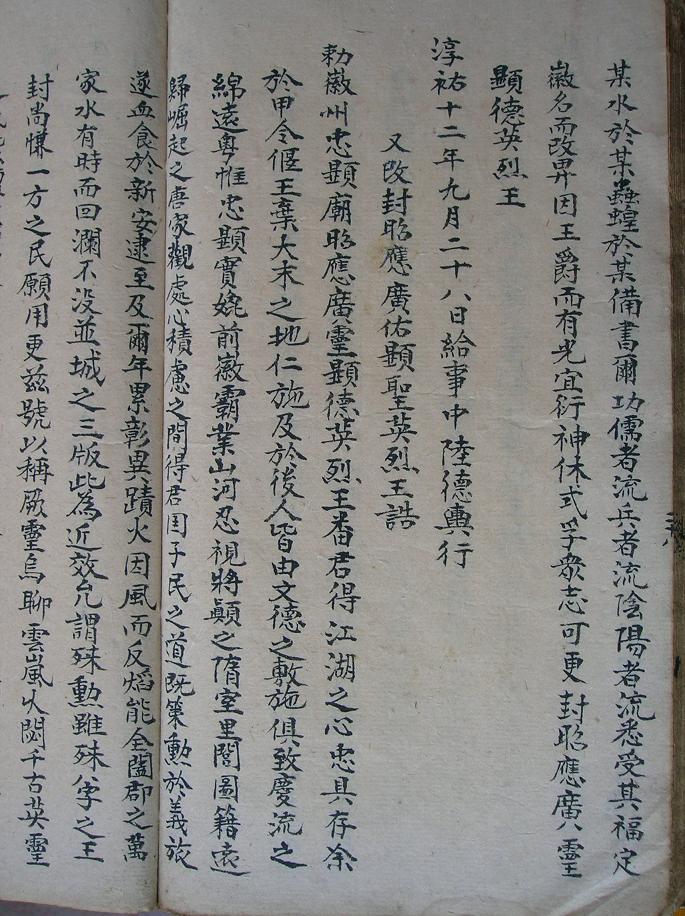 某水於某蟲蝗於某備書爾功儒者流兵者流陰陽者流悉受其福定
徽名而改畀因王爵而有光宜衍神休式孚衆志可更封昭應廣靈
顯德英烈王
淳祐十二年九月二十八日給事中陸德輿行
又改封昭應廣佑顯聖英烈王誥
勅徽州忠顯廟昭應廣靈顯德英烈王番君得江湖之心忠具存余
於甲令偃王棄大末之地仁施及於後人皆由文德之敷施俱致慶流之
綿遠粤惟忠顯實媲前徽霸業山河忍視將顛之隋室里閭圖籍遠
歸崛起之唐家觀處心積慮之間得君国子民之道既策勳於義旅
遂血食於新安逮至及爾年累彰異蹟火因風而反熖能全闔郡之萬
家水有時而回瀾不没並城之三版此為近效允謂殊勳雖殊八字之王
封尚慊一方之民願用更兹號以稱厥靈烏聊雲嵐火閟千古英靈